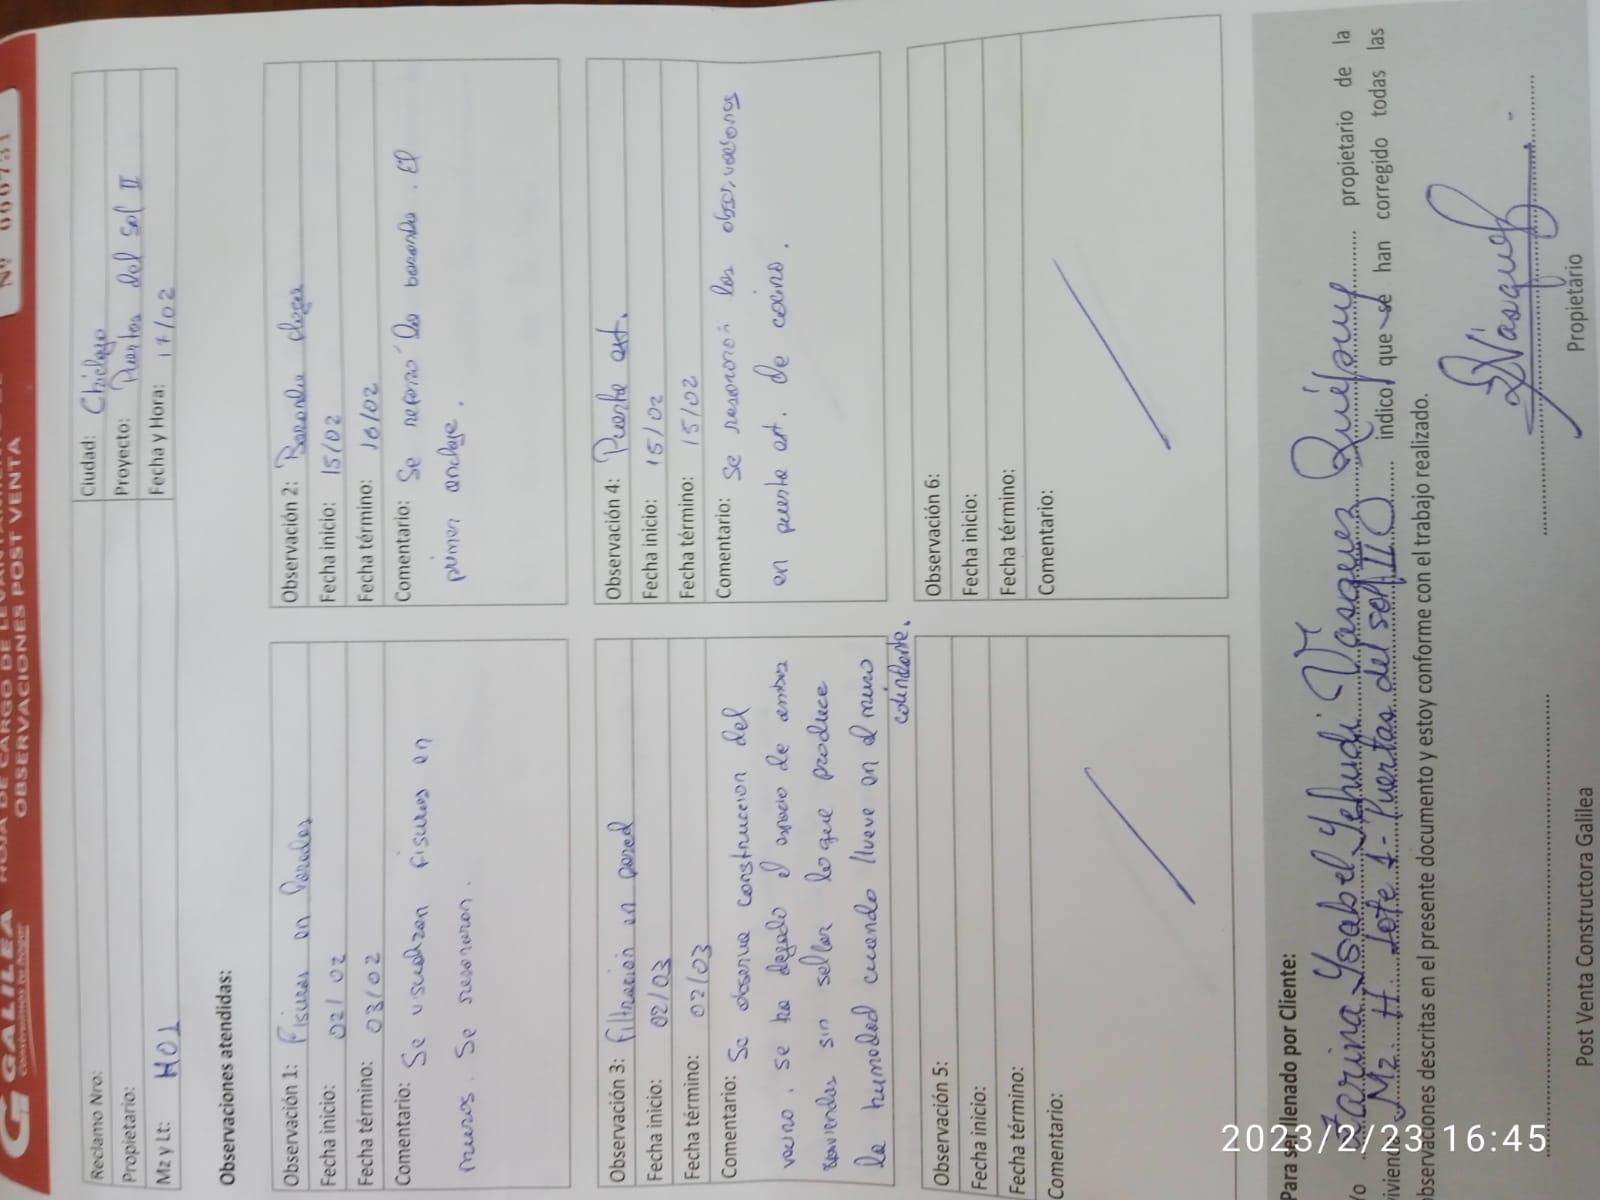 GALILEA
Construimos tu hogar
HOJA DE CARGO DE
OBSERVACIONES POST VENTA
Nº 000731
Reclamo Nro:
Propietario:
Mz y Lt: H01
Ciudad: Chiclayo
Proyecto: Puertas del Sol II
Fecha y Hora: 17/02
Observaciones atendidas:
Observación 1: Fisuras en Paredes
Fecha inicio: 02/02
Fecha término: 03/02
Comentario: Se visualizan fisuras en
muros. Se resanaron.
Observación 2: Baranda
Fecha inicio: 15/02
Fecha término: 16/02
Comentario: Se reforzó la baranda. El
primer anclaje.
Observación 3: Filtración en pared
Fecha inicio: 02/03
Fecha término: 02/03
Comentario: Se observa construccion del
vecino, se ha dejado el espacio de ambas
viviendas sin sellar lo que produce
la humedad cuando llueve en el muro
colindante.
Observación 4: Puerta ext.
Fecha inicio: 15/02
Fecha término: 15/02
Comentario: Se resanaron las observaciones
en puerta ext. de cocina.
Observación 5:
Fecha inicio:
Fecha término:
Comentario:
Observación 6:
Fecha inicio:
Fecha término:
Comentario:
Para ser llenado por Cliente:
Yo Zarina Ysabel Yehudi Vasquez Quépuy propietario de la
vivienda Mz H Lote 1 - Puertas del sol II indico que se han corregido todas las
observaciones descritas en el presente documento y estoy conforme con el trabajo realizado.
Post Venta Constructora Galilea
Propietario
2023/2/23 16:45